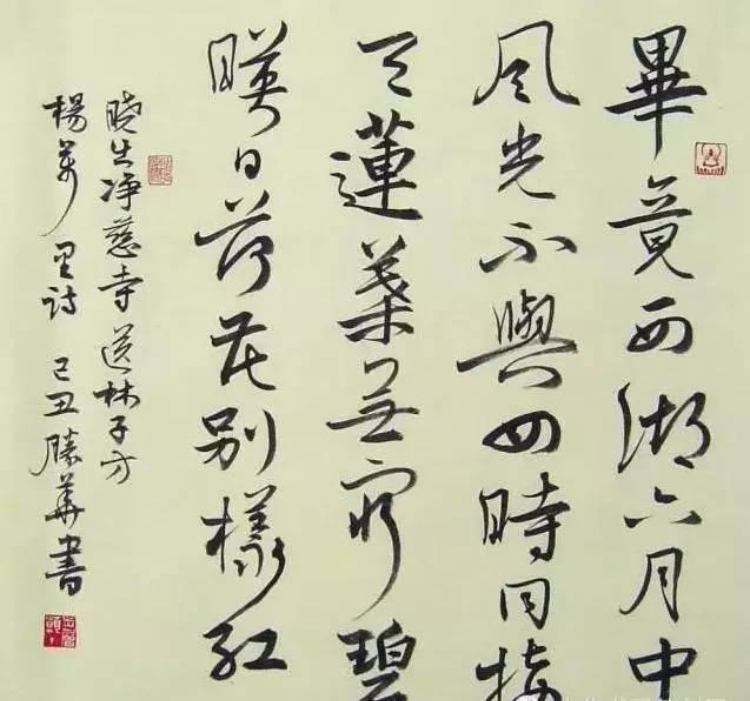 畢竟西湖六月中
風光不與四時同接
天蓮葉無窮碧
暎日荷花別樣紅
曉出净慈寺送林子方
楊萬里詩 己丑勝華書